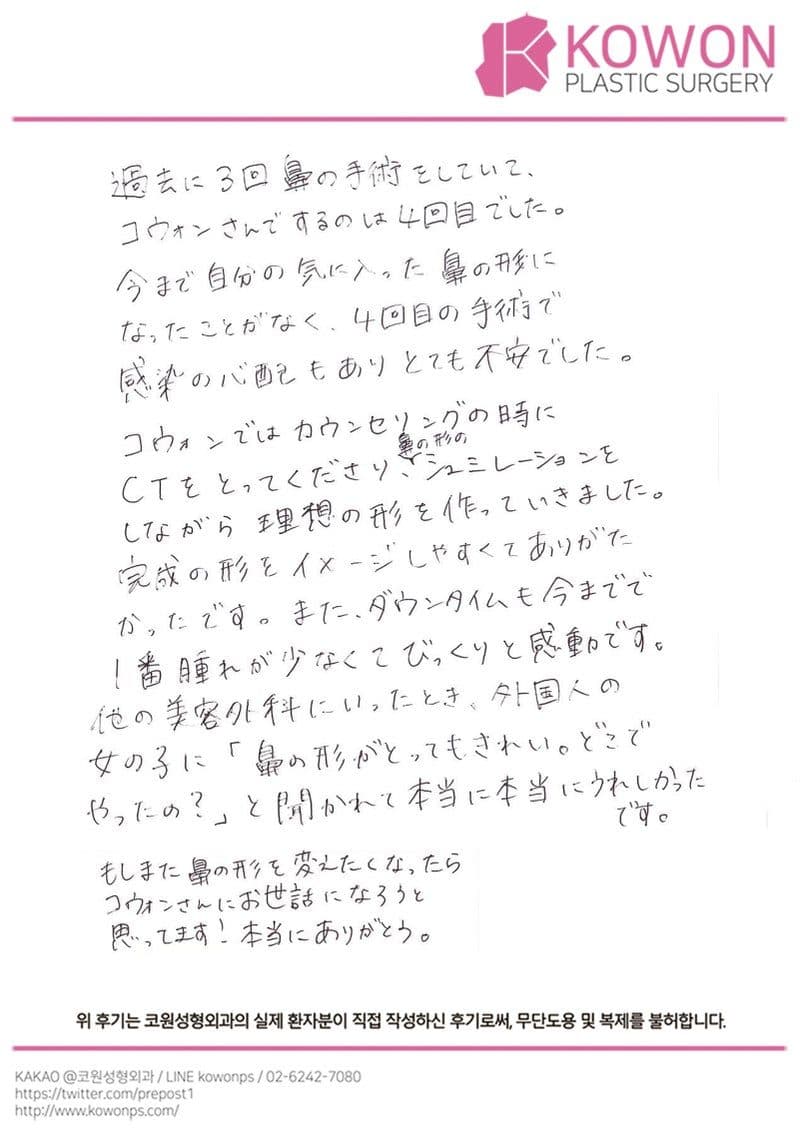 KOWON
PLASTIC SURGERY
過去に3回鼻の手術をしていて、
コウォンさんでするのは4回目でした。
今まで自分の気に入った鼻の形に
なったことがなく、4回目の手術で
感染の心配もありとても不安でした。
コウォンではカウンセリングの時に
鼻の形の
CTをとってくださり、シュミレーションを
しながら理想の形を作っていきました。
完成の形をイメージしやすくてありがた
かったです。また、ダウンタイムも今までで
1番腫れが少なくてびっくりと感動です。
他の美容外科にいったとき、外国人の
女の子に「鼻の形がとってもきれい。どこで
やったの?」と聞かれて本当に本当にうれしかった
です。
もしまた鼻の形を変えたくなったら
コウォンさんにお世話になろうと
思ってます!本当にありがとう。
위 후기는 코원성형외과의 실제 환자분이 직접 작성하신 후기로써, 무단도용 및 복제를 불허합니다.
KAKAO @코원성형외과 / LINE kowonps / 02-6242-7080
https://twitter.com/prepost1
http://www.kowonps.com/